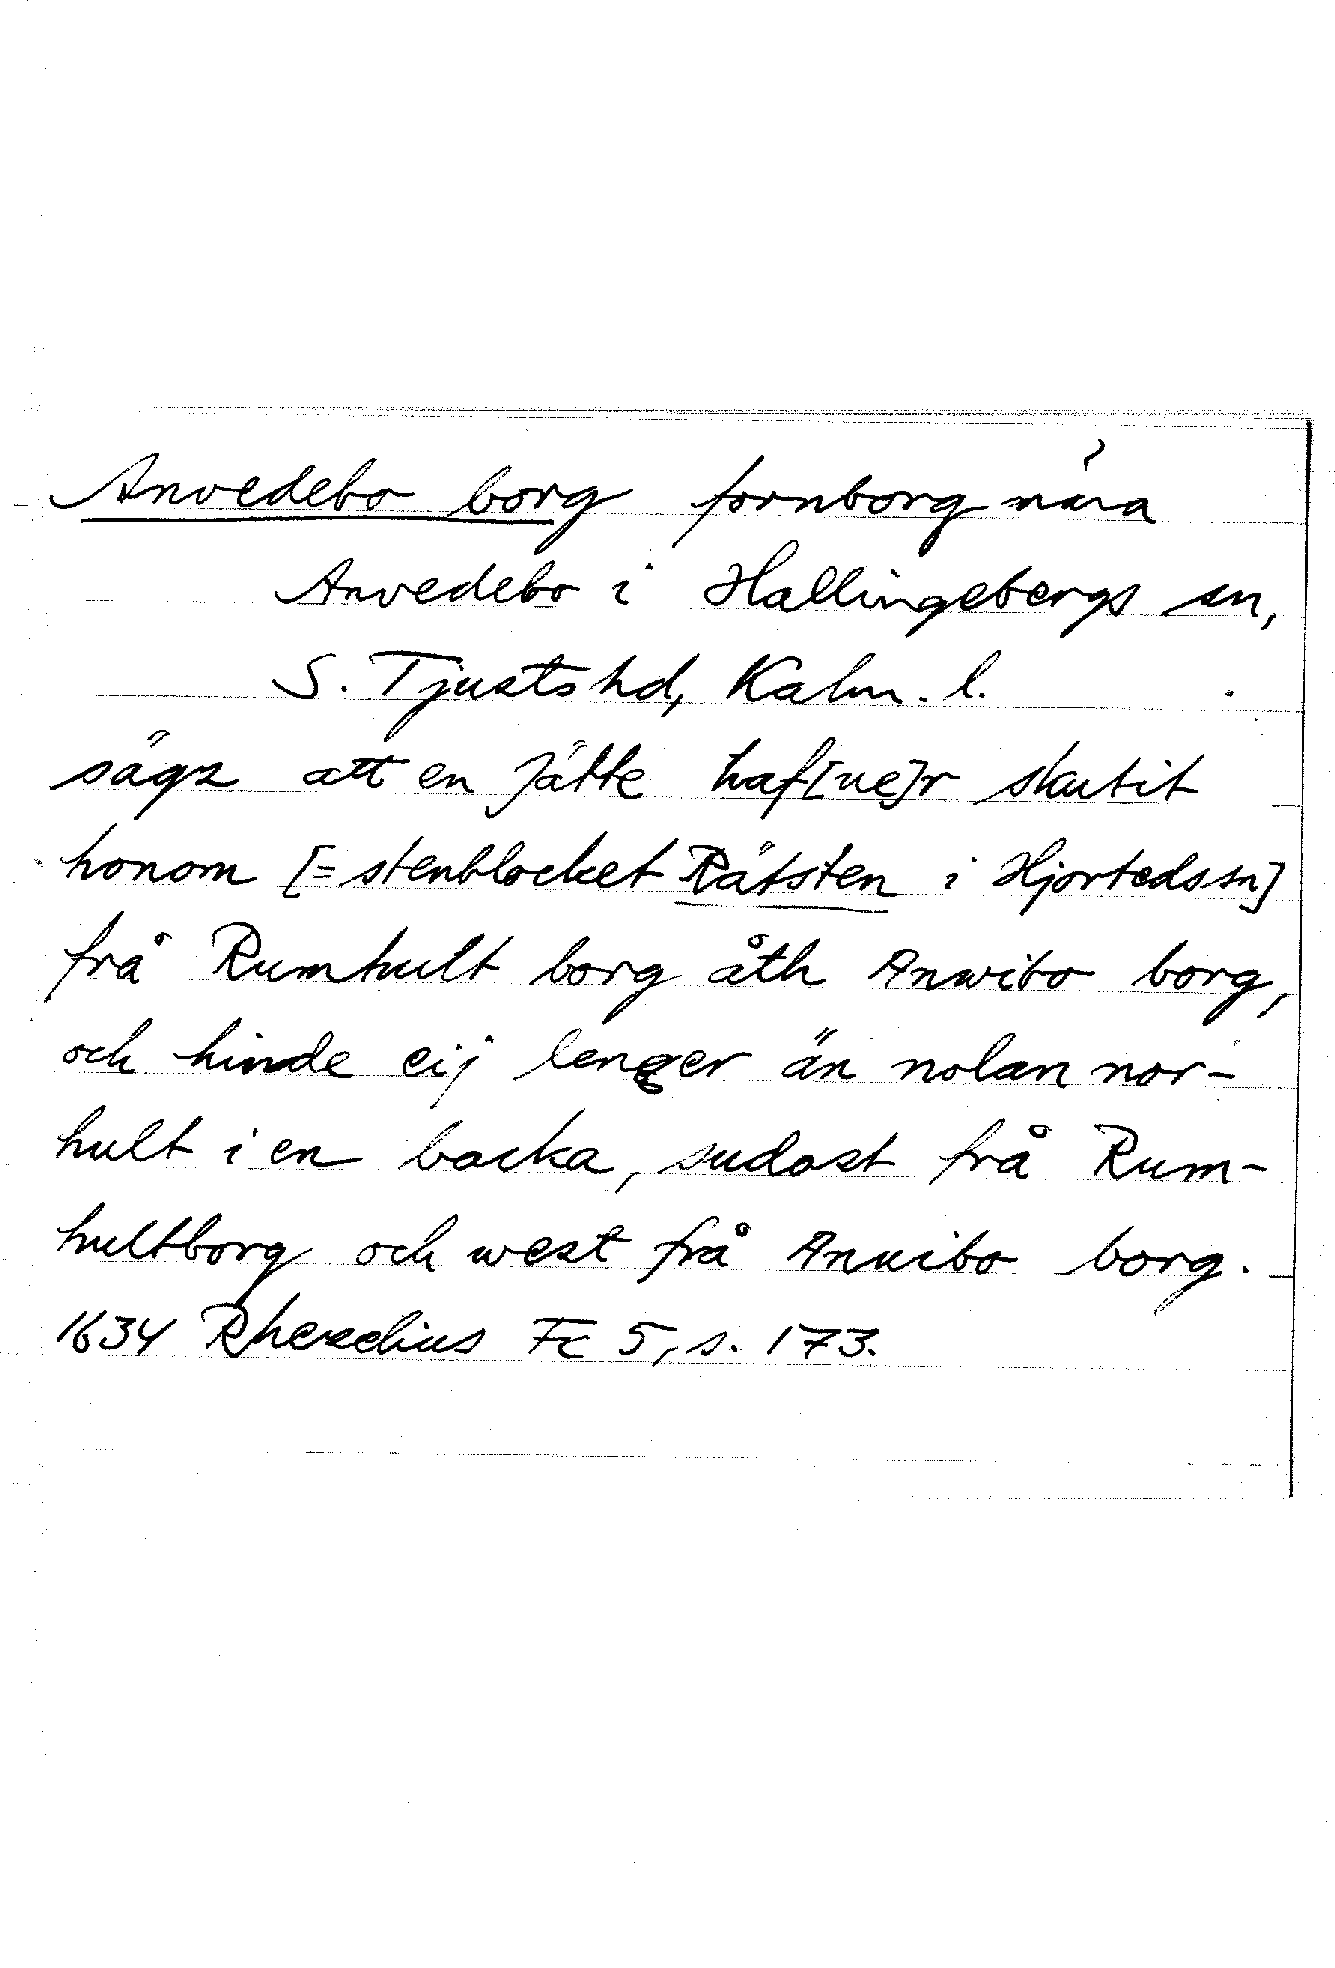 Anvedebo borg fornborg nära
Anvedebo i Hallingebergs sn,
S. Tjusts hd, Kalm. l.
sägz att en Jätte haf[ue]r skutit
honom [= stenblocket Råtsten i Hjorteds sn]
frå Rumhult borg åth Anwibo borg,
och hinde eij lenger än nolan nor-
hult i en backa, sudost frå Rum-
hultborg och west frå Anwibo borg.
1634 Rhezelius Fc 5, s. 173.